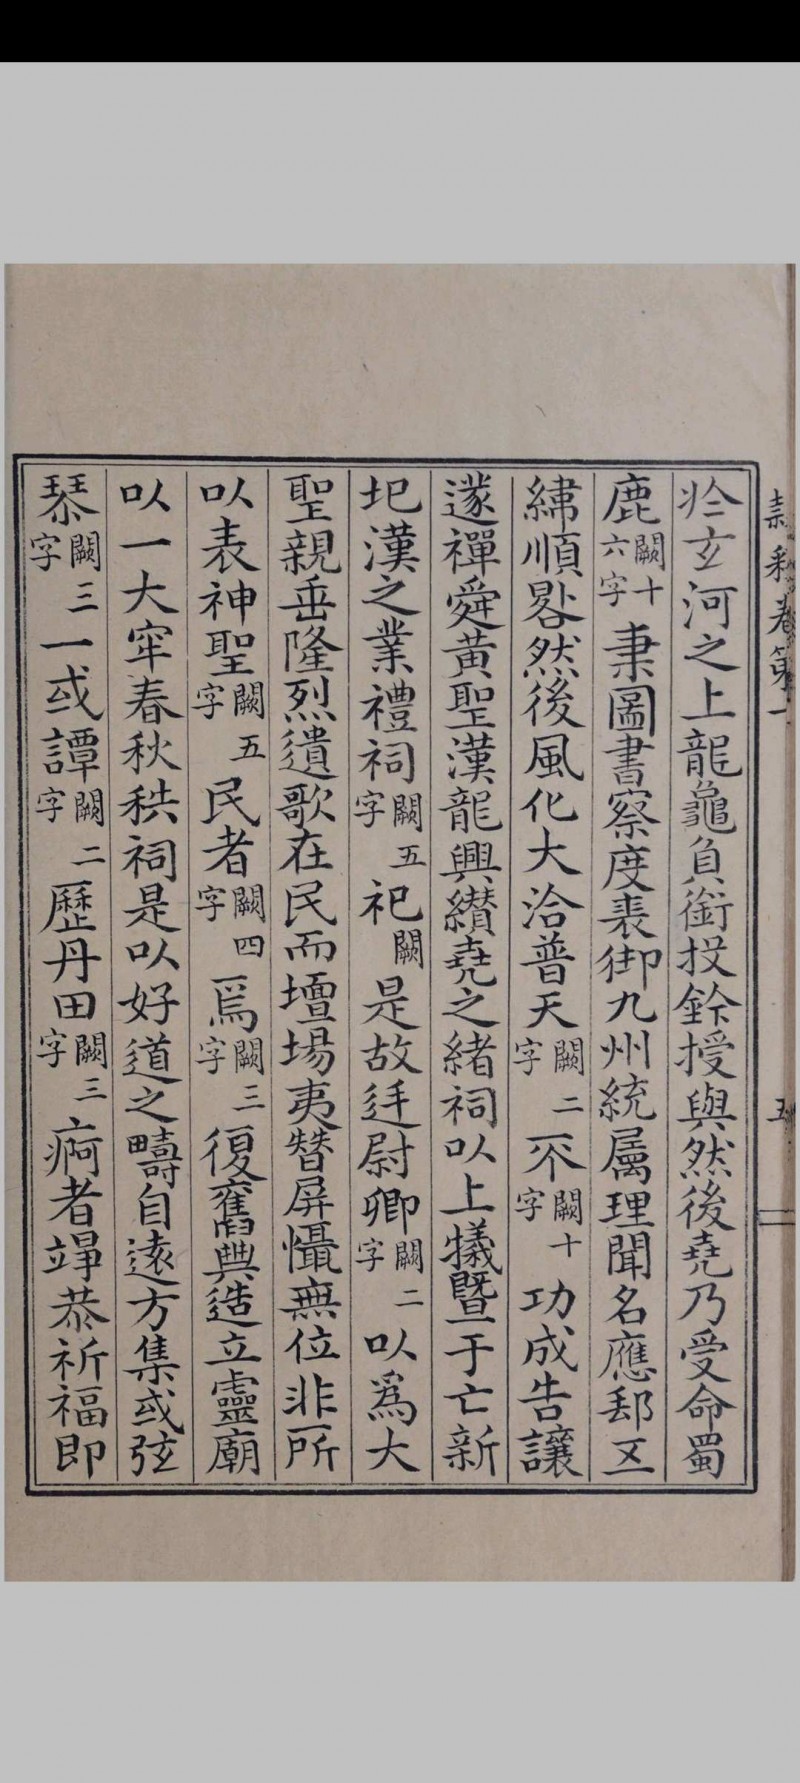 隸釋卷第一
五
於玄河之上龍龜負銜投鈐授與然後堯乃受命蜀
鹿闕十六字秉圖書察度表御九州統屬理聞名應郵五
緯順畧然後風化大洽普天闕二字不闕十字功成告讓
遂禪舜黃聖漢龍興纘堯之緒祠以上犧曁于亡新
圮漢之業禮祠闕五字祀闕是故廷尉卿闕二字以爲大
聖親垂隆烈遺歌在民而壇場夷替屏懾無位非所
以表神聖闕五字民者闕四字爲闕三字復舊典造立靈廟
以一大牢春秋秩祠是以好道之疇自遠方集或弦
琴闕三字一或譚闕二字歷丹田闕三字痾者竫恭祈福即